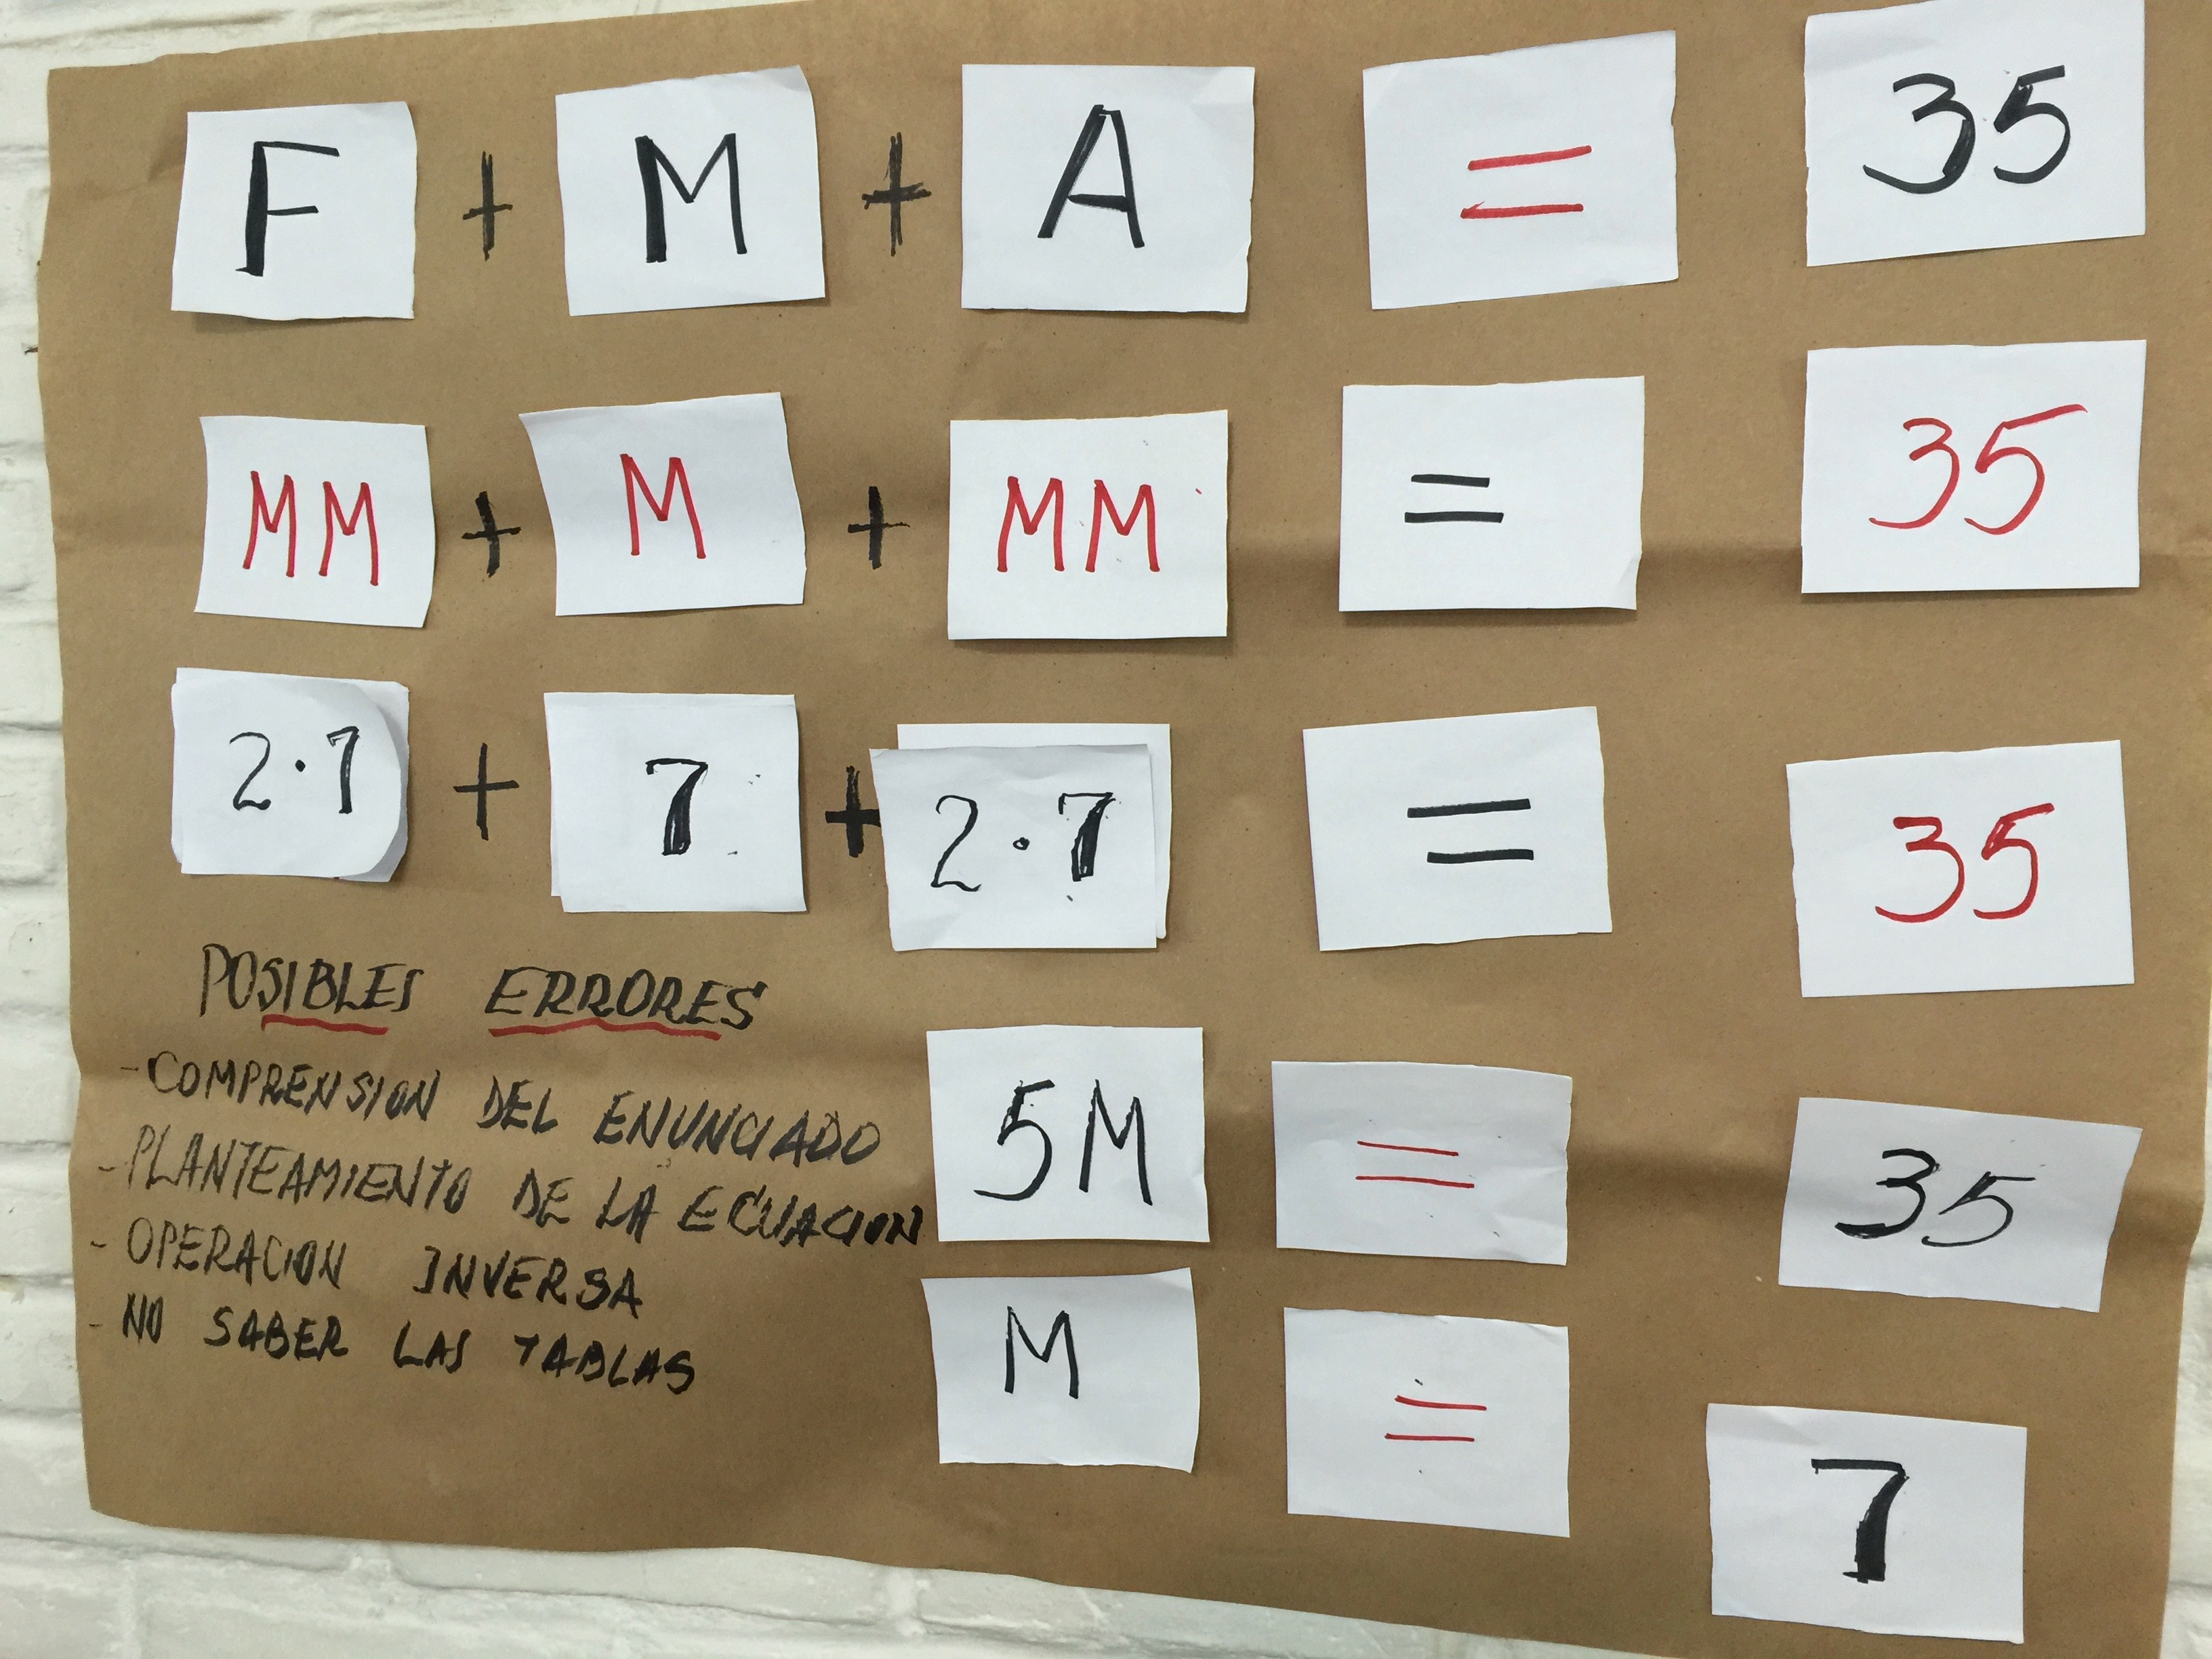 F + M + A = 35
MM + M + MM = 35
2·7 + 7 + 2·7 = 35
POSIBLES ERRORES
- COMPRENSION DEL ENUNCIADO
- PLANTEAMIENTO DE LA ECUACION
- OPERACION INVERSA
- NO SABER LAS TABLAS
5M = 35
M = 7